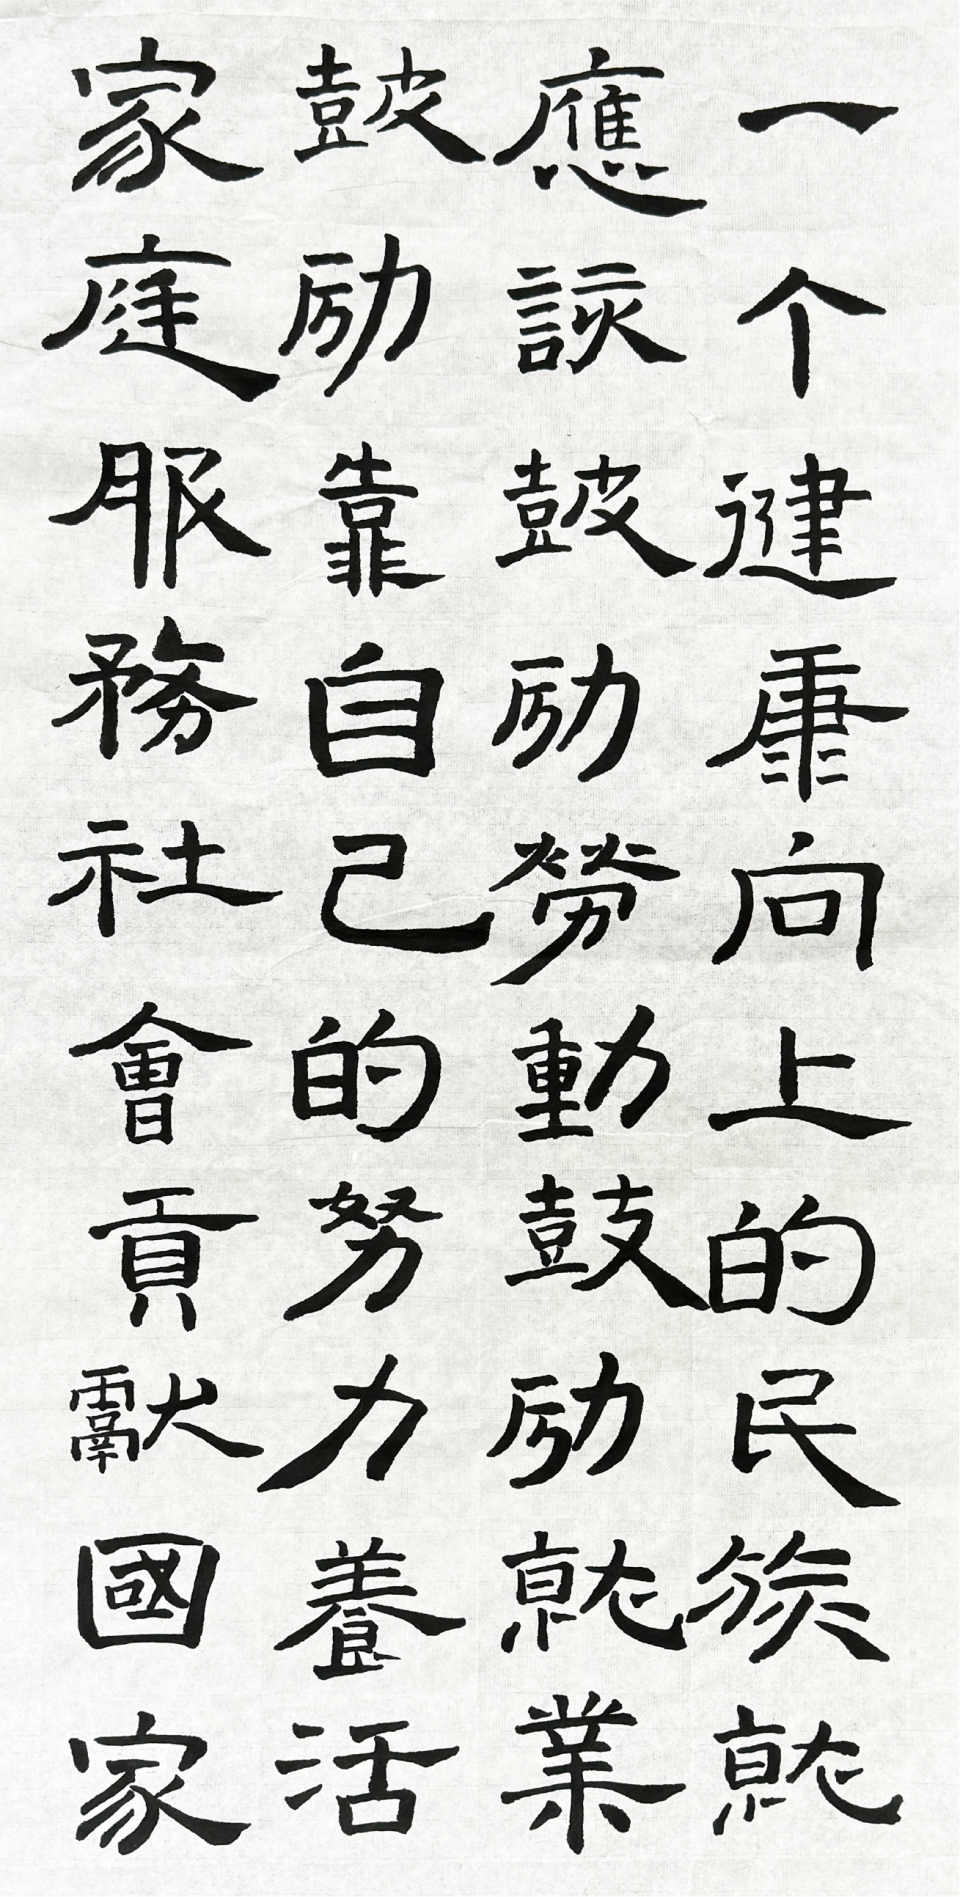 一个健康向上的民族就
應該鼓励勞動鼓励就業
鼓励靠自己的努力養活
家庭服務社會貢獻國家